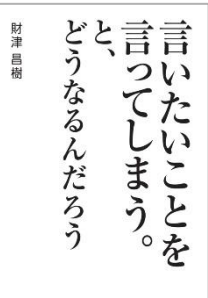 言いたいことを
言ってしまう。
と、
どうなるんだろう
財津 昌樹